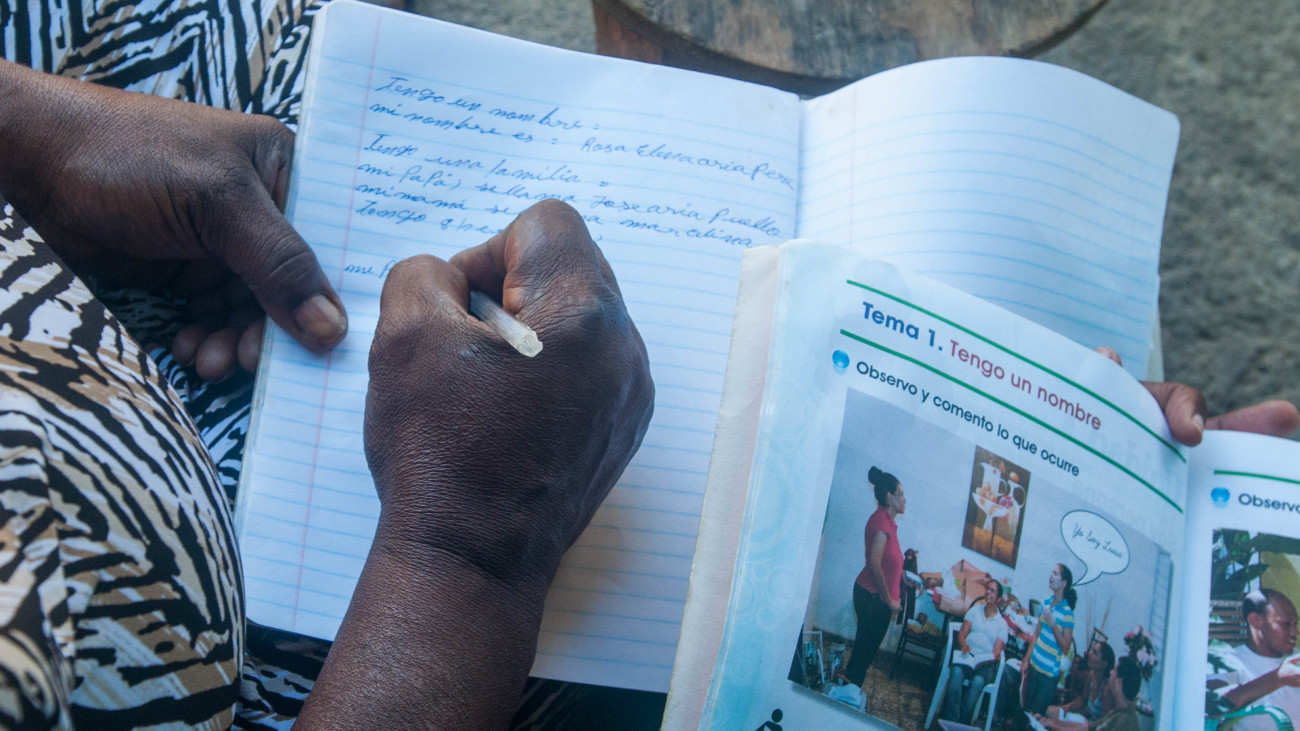 Tengo un nombre :
mi nombre es : Rosa Elena
Tengo una familia =
mi Papá, se llama Jose aria Puello
mi mamá se marcelina
Tengo
Tema 1. Tengo un nombre
Observo y comento lo que ocurre
Yo Soy Lucia